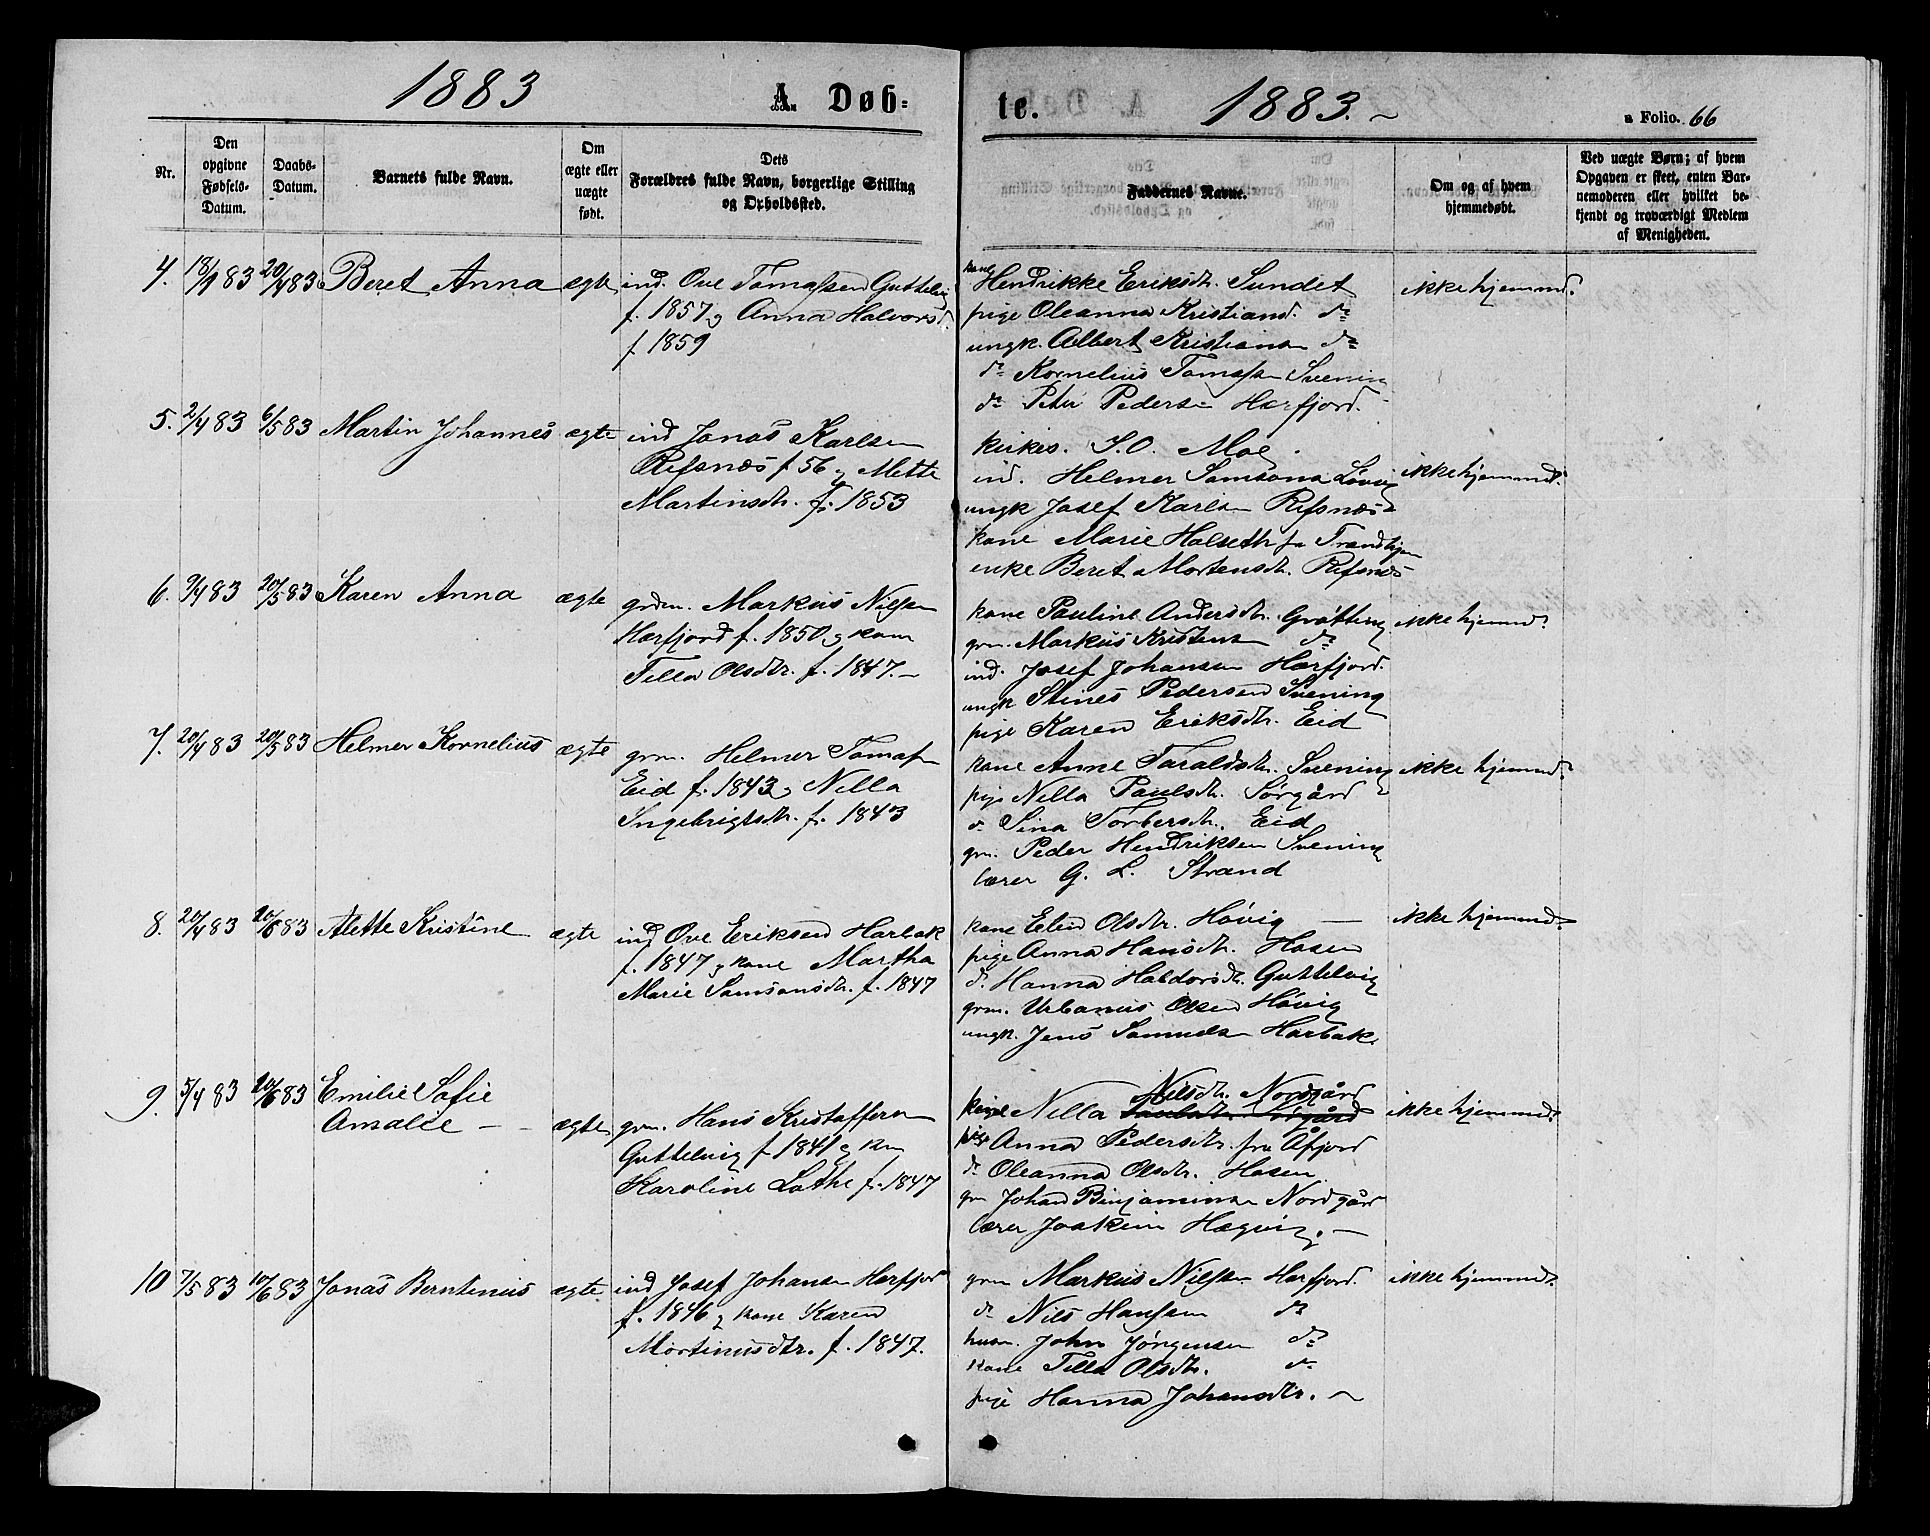 1883 A. Døb-
te. 1883. a Folio. 66
Nr.
Den
opgivne
Fødsels-
Datum.
Daabs-
Datum.
Barnets fulde Navn.
Om
ægte eller
uægte
født.
Dets
Forældres fulde Navn, borgerlige Stilling
og Opholdssted.
Faddernes Navne.
Om og af hvem
hjemmedøbt.
Ved uægte Børn; af hvem
Opgaven er skeet, enten Bar-
nemoderen eller hvilket be-
kjendt og troværdigt Medlem
af Menigheden.
4. 18/1 83 20/4 83 Beret Anna ægte
ind. Ove Tomassen Guttelvig
f. 1857 og Anna Halvorsd.
f. 1859
kone Hendrikke Eriksdtr. Sundet
pige Oleanna Kristiansd. do
ungk. Albert Kristiansen do
do Kornelius Tomassen Svening
do Peter Pedersen Harfjord.
ikke hjemmed.
5. 2/4 83 6/5 83 Martin Johannes ægte
ind Jonas Karlsen
Refsnæs f 56 og Mette
Martinsdtr. f. 1853
kirkes. I. O. Moe.
ind. Helmer Samsons. Løvig
ungk Josef Karlsen Refsnæs
kone Marie Halseth fra Trondhjem
enke Beret Mortensdtr. Refsnæs
ikke hjemmed.
6. 9/4 83 20/5 83 Karen Anna ægte
grdm. Markus Nilsen
Harfjord f. 1850 og kone
Tella Olsdtr. f. 1847.
kone Pauline Andersdtr. Grøtting
grm. Markus Kristensen do
ind. Josef Johansen Harfjord.
ungk Stines Pedersen Svening
pige Karen Eriksdtr. Eid
ikke hjemmed.
7. 20/4 83 20/5 83 Helmer Kornelius ægte
grm. Helmer Tomassen
Eid f. 1843 og Nella
Ingebrigtsdtr. f. 1843
kone Anne Taraldsdtr. Svening
pige Nella Paulsdtr. Sørgård
do Sina Torbersdtr. Eid
grm. Peder Hendriksen Svening
lærer G. L. Strand
ikke hjemmed.
8. 20/4 83 10/6 83 Alette Kristine ægte
ind Ove Eriksen Harbak
f. 1847 og kone Martha
Marie Samsonsdtr. f. 1847
kone Elen Olsdtr. Høvig
pige Anna Hansdtr. Hasen
d. Hanna Haldorsdtr. Guttelvig
grm. Urbanus Olsen Høvig
ungk. Jens Samuelsen Harbak.
ikke hjemmed.
9. 5/4 83 10/6 83 Emilie Sofie
Amalie ægte
grm. Hans Kristoffersen
Guttelvig f 1841 og kone
Karoline Lothe f. 1847
Nilsdtr. Nordgård
pige Nella Paulsdtr. Sørgård
pige Anna Pedersdtr. fra Åfjord
do Oleanna Olsdtr. Hasen
grm Johan Binjaminsen Nordgård
lærer Joakim Hægvig.
ikke hjemmed.
10 7/5 83 10/6 83 Jonas Berntinus ægte
ind Josef Johansen Harfjord
f. 1846 og kone Karen
Mortinusdtr. f. 1847.
grm Markus Nilsen Harfjord.
do Nils Hansen do
husm. John Jørgensen do
kone Tella Olsdtr. do
pige Hanna Johansdtr.
ikke hjemmed.